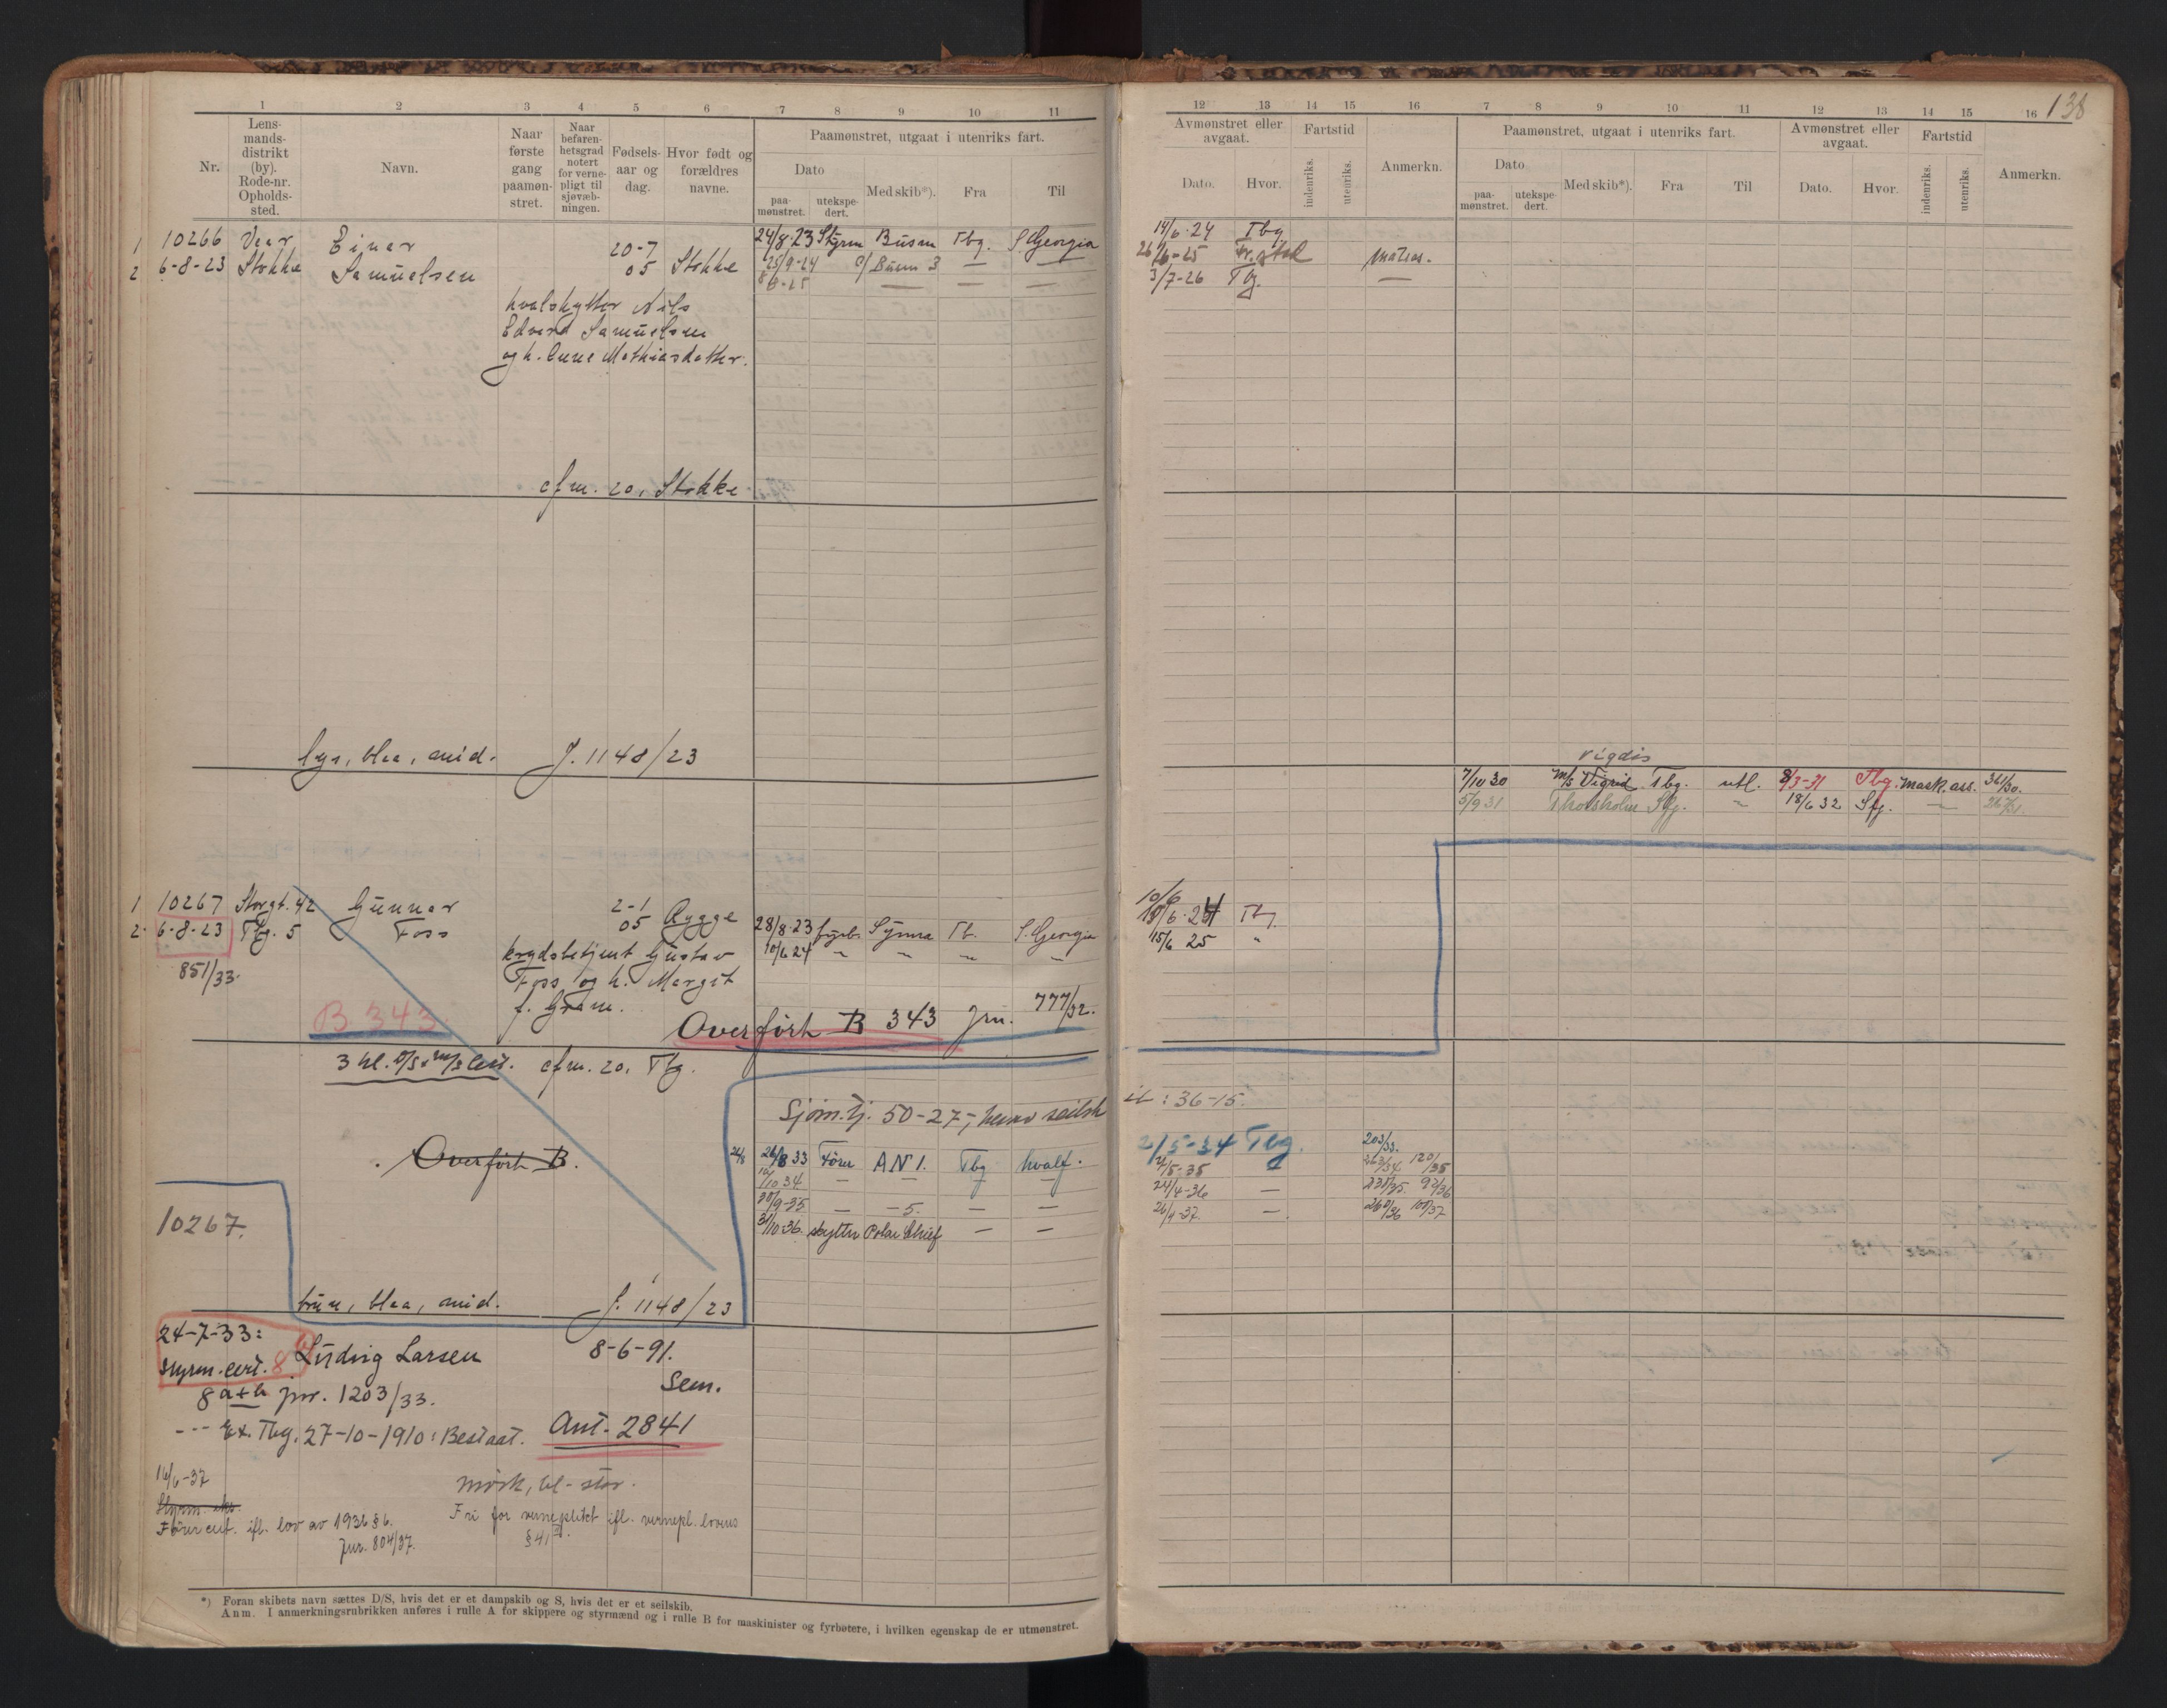 1 2 3 4 5 6 7 8 9 10 11
Nr.
Lens-
mands-
distrikt
(by).
Rode-nr.
Opholds-
sted.
Navn.
Naar
første
gang
paamøn-
stret.
Naar
befaren-
hetsgrad
notert
for verne-
pligt til
sjøvæb-
ningen.
Fødsels-
aar og
dag.
Hvor født og
forældres
navne.
Paamønstret, utgaat i utenriks fart.
Dato
paa-
mønstret.
utekspe-
dert.
Med skib*).
Fra
Til
1 10266 Vear Einar 20-7 24/8.23 Styrm Busen Tbg. S. Georgia
2 6-8-23 Stokke Samuelsen 05 Stokke 25/9-24 Busen 3 — —
8/8-25 — — —
hvalskytter Nils
Edvard Samuelsen
og h. Anne Mathiasdatter.
cfm. 20, Stokke
lys, blaa, mid. J. 1148/23
1 10267 Storgt. 42 Gunnar 2-1
2. 6-8-23 Tbg. 5 Foss 05 Rygge 28/8.23 fyrb. Symra Tb. S. Georgia
10/6 24 " " " "
851/33.
krydsbetjent Gustav
Foss og h. Margit
f. Gram.
B 343
Overført B 343 Jrn. 777/32.
3 kl. D/S & M/S Cert. cfm. 20, Tbg.
Sjøm.tj. 50-27-, herav seilsk
Overført B.
26/8 26/8 33 Fører AN 1. Tbg hvalf.
10/10 34 — — — —
30/9-35 — — 5. — —
31/10-36. skytter Polar Chief — —
10267.
brun, blaa, mid. J. 1148/23
24-7-33:
Styrm. cert. 8
Ludvig Larsen 8-6-91.
Sem.
8 a+b jnr. 1203/33.
--- Ex. Tbg. 27-10-1910: Bestaat. Ant. 2841
16/6-37
mørk, bl- stor.
Styrm. eks.
Førercert. ifl. lov av 1936 § 6.
Jnr. 804/37.
Fri for verneplikt ifl. vernepl. lovens
§ 41
*) Foran skibets navn sættes D/S, hvis det er et dampskib og S, hvis det er et seilskib.
Anm. I anmerkningsrubrikken anføres i rulle A for skippere og styrmænd og i rulle B for maskinister og fyrbøtere, i hvilken egenskap de er utmønstret.
12 13 14 15 16 7 8 9 10 11 12 13 14 15 16
138
Avmønstret eller
avgaat.
Dato.
Hvor.
Fartstid
indenriks.
utenriks.
Anmerkn.
Paamønstret, utgaat i utenriks fart.
Dato
paa-
mønstret.
utekspe-
dert.
Med skib*).
Fra
Til
Avmønstret eller
avgaat.
Dato.
Hvor.
Fartstid
indenriks.
utenriks.
Anmerkn.
14/6.24 Tbg
26/6-25 Fr.stad matros.
3/7-26 Tbg. —
Vigdis
7/10 30 M/S Vigrid Tbg. utl. 8/3-31 Tbg. Mask. ass. 361/30.
5/9 31 Thorsholm Sfj. " 18/6 32 Sfj. —
10/6
10/6.24 Tbg
15/6 25 "
it: 36-15.
2/5-34 Tbg. 203/33.
2/5-35 263/34 120/35
24/4-36 — 238/35. 92/36
26/4-37. — 260/36 100/37